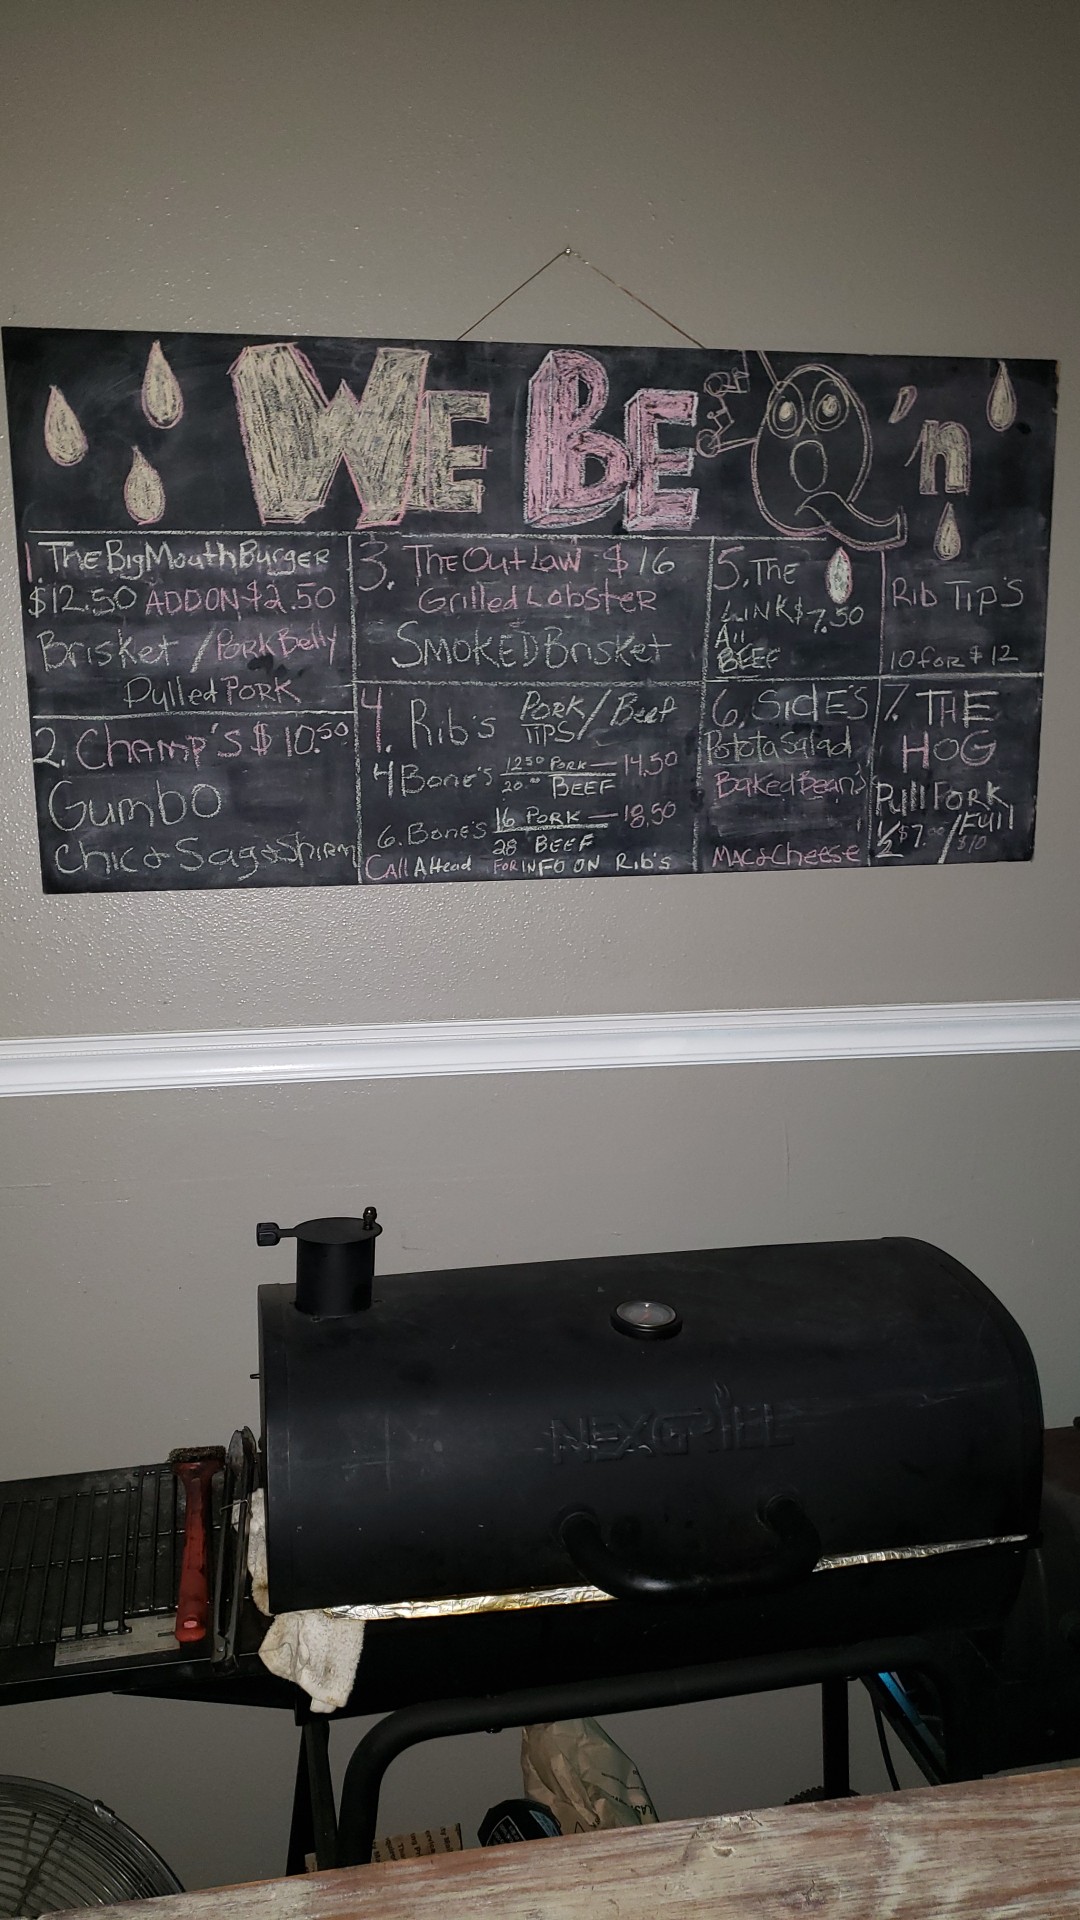 WE BE Q'n
1. The Big Mouth Burger
$12.50 ADD ON $2.50
Brisket / Pork Belly
Pulled PORK
2. Champ's $10.50
Gumbo
Chic & Sag & Shirm
3. The OutLaw $16
Grilled Lobster
SMOKED Brisket
4. Rib's PORK/Beef
TIPS/
4 Bone's 12 50 PORK — 14.50
20.00 BEEF
6. Bone's 16 PORK — 18.50
28 BEEF
Call AHead FOR INFO ON Rib's
5. The
LINK $7.50
All
BEEF
Rib Tip's
10 FOR $12
6. SidE'S
Potota Salad
Baked Bean's
MAC & Cheese
7. THE
HOG
Pull PORK
1/2 $7.00 / Full
$10
NEXGRILL